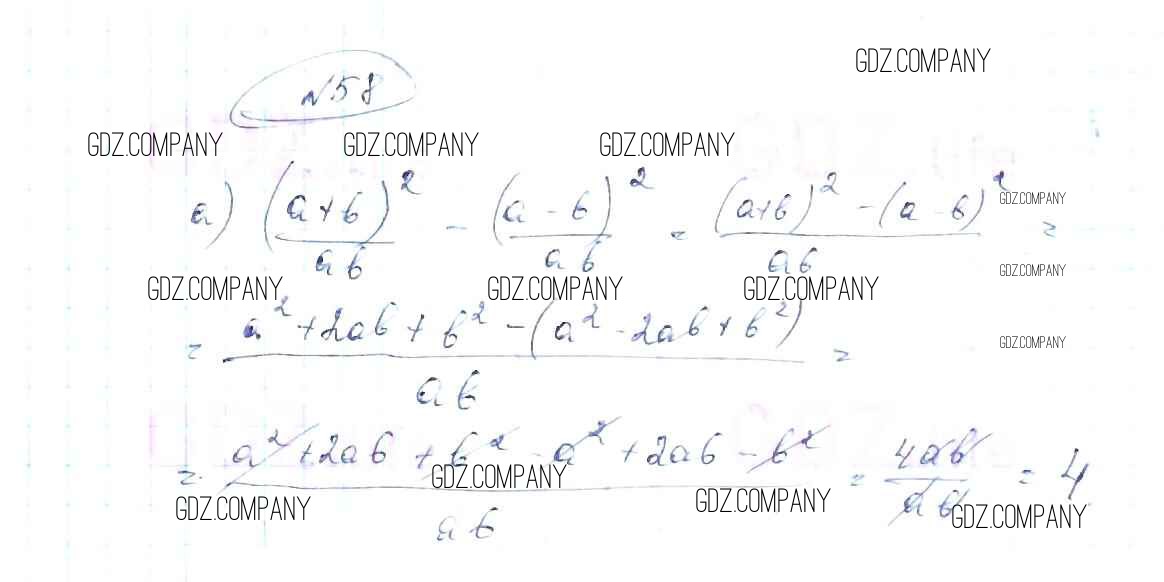 GDZ.COMPANY
№58
GDZ.COMPANY GDZ.COMPANY GDZ.COMPANY
а) (a+b)²/ab - (a-b)²/ab = ((a+b)² - (a-b)²)/ab =
GDZ.COMPANY
GDZ.COMPANY
GDZ.COMPANY GDZ.COMPANY GDZ.COMPANY
= (a² + 2ab + b² - (a² - 2ab + b²))/ab =
GDZ.COMPANY
= (a² + 2ab + b² - a² + 2ab - b²)/ab = 4ab/ab = 4
GDZ.COMPANY
GDZ.COMPANY GDZ.COMPANY GDZ.COMPANY